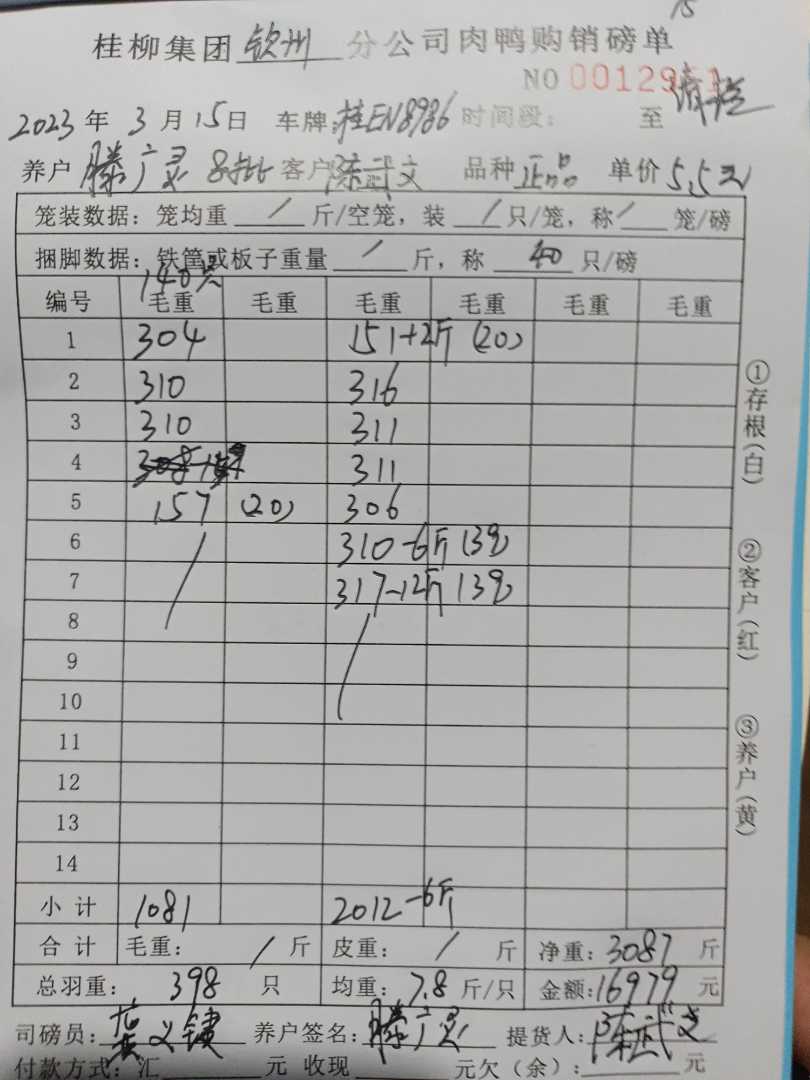 15
桂柳集团 钦州 分公司肉鸭购销磅单
NO 0012951
2023 年 3 月 15 日 车牌: 桂EN8986 时间段: 至
养户 滕广灵 8批 客户 陈武文 品种 正品 单价 5.5元
笼装数据: 笼均重 / 斤/空笼, 装 / 只/笼, 称 / 笼/磅
捆脚数据: 铁筐或板子重量 / 斤, 称 40 只/磅
140只
编号 毛重 毛重 毛重 毛重 毛重 毛重
1 304 151+2斤 (20)
2 310 316
3 310 311
4 311
5 157 (20) 306
6 / 310-6斤 13只
7 317-12斤 13只
8 /
9
10
11
12
13
14
小计 1081 2012-6斤
合计 毛重: / 斤 皮重: / 斤 净重: 3087 斤
总羽重: 398 只 均重: 7.8 斤/只 金额: 16979 元
司磅员: 养户签名: 滕广灵 提货人: 陈武文
付款方式: 汇 元 收现 元欠(余): 元
①存根(白)
②客户(红)
③养户(黄)